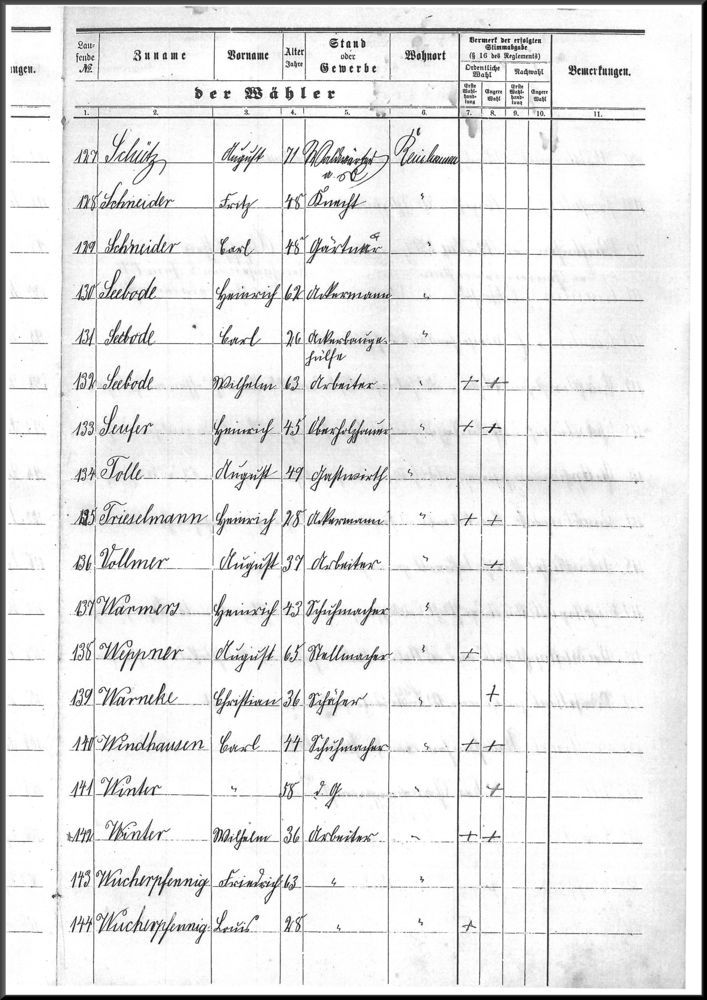 ngen.
Laufende
№.
Zuname
Vorname
Alter
Jahre
Stand
oder
Gewerbe
Wohnort
Vermerk der erfolgten
Stimmabgabe
(§ 16 des Reglements)
Ordentliche
Wahl
Nachwahl
Erste
Wahl-
hand-
lung
Engere
Wahl
Erste
Wahl-
hand-
lung
Engere
Wahl
Bemerkungen.
der Wähler
1. 2. 3. 4. 5. 6. 7. 8. 9. 10. 11.
127 Schütz August 71
128 Schneider Fritz 48 Knecht "
129 Schneider Carl 48 Gärtner "
130 Seebode Heinrich 62 Ackermann "
131 Seebode Carl 26 Ackerbauge-
hülfe "
132 Seebode Wilhelm 63 Arbeiter " + +
133 Seufer Heinrich 45 Oberholzhauer " + +
134 Tolle August 49 Gastwirth "
135 Trieselmann Heinrich 28 Ackermann " + +
136 Vollmer August 37 Arbeiter " +
137 Warmers Heinrich 43 Schuhmacher "
138 Weppner August 65 Stellmacher " +
139 Warneke Christian 36 Schäfer " +
140 Windhausen Carl 44 Schuhmacher " + +
141 Winter " 58 d. G. " +
142 Winter Wilhelm 36 Arbeiter " + +
143 Wucherpfennig Friedrich 63 " "
144 Wucherpfennig Louis 28 " " +